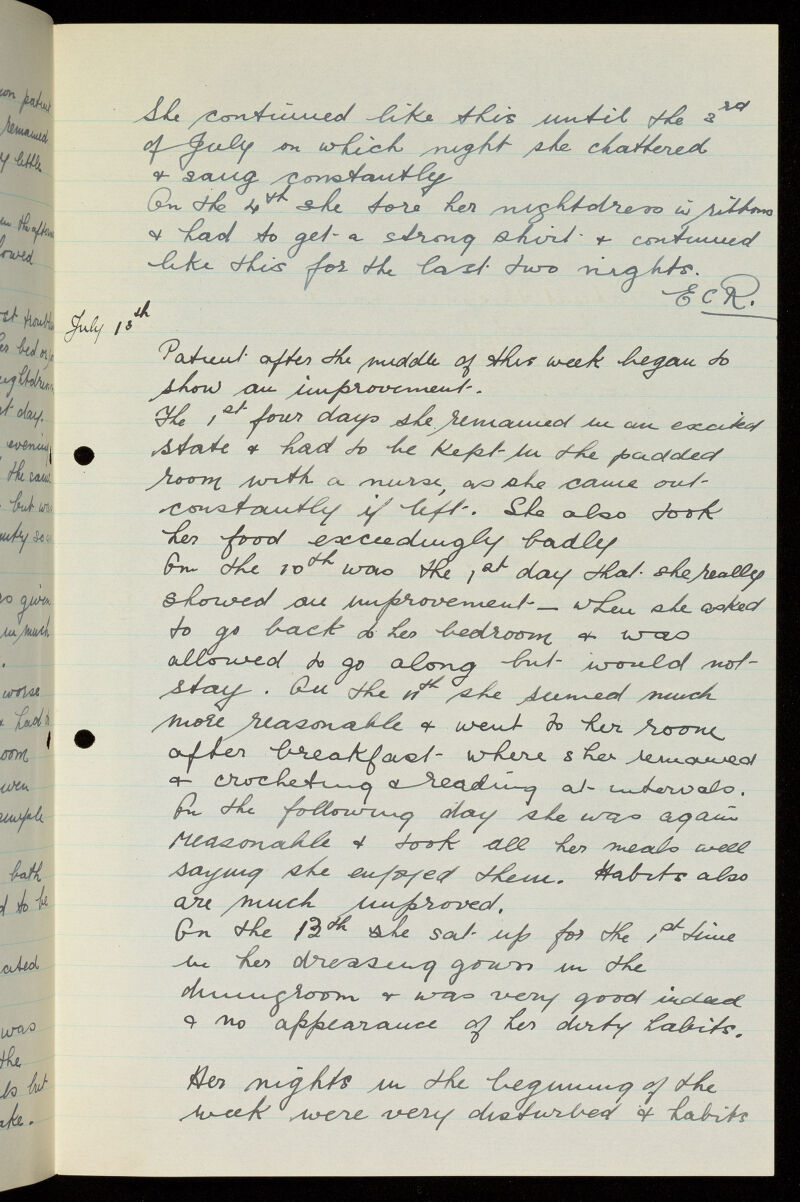 She continued like this until the 3rd
of July on which night she chattered
& sang constantly
On the 4th she tore her nightdress in ribbons
& had to get a strong shirt & continued
like this for the last two nights.
E C R.
July 13th
Patient after the middle of this week began to
show an improvement.
The 1st four days she remained in an excited
state & had to be kept in the padded
room with a nurse, as she came out
constantly if left. She also took
her food exceedingly badly
On the 10th was the 1st day that she really
showed an improvement — when she asked
to go back to her bedroom & was
allowed to go along but would not
stay. On the 11th she seemed much
more reasonable & went to her room
after breakfast where she remained
& crocheting & reading at intervals.
On the following day she was again
reasonable & took all her meals well
saying she enjoyed them. Habits also
are much improved.
On the 13th she sat up for the 1st time
in her dressing gown in the
diningroom & was very good indeed
& no appearance of her dirty habits.
Her nights in the beginning of the
week were very disturbed & habits